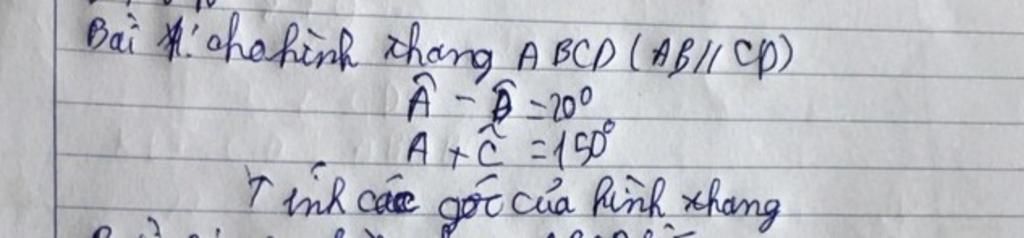 Bài 4: cho hình thang ABCD (AB // CD)
Â - D̂ = 20°
A + Ĉ = 150°
Tính các góc của hình thang